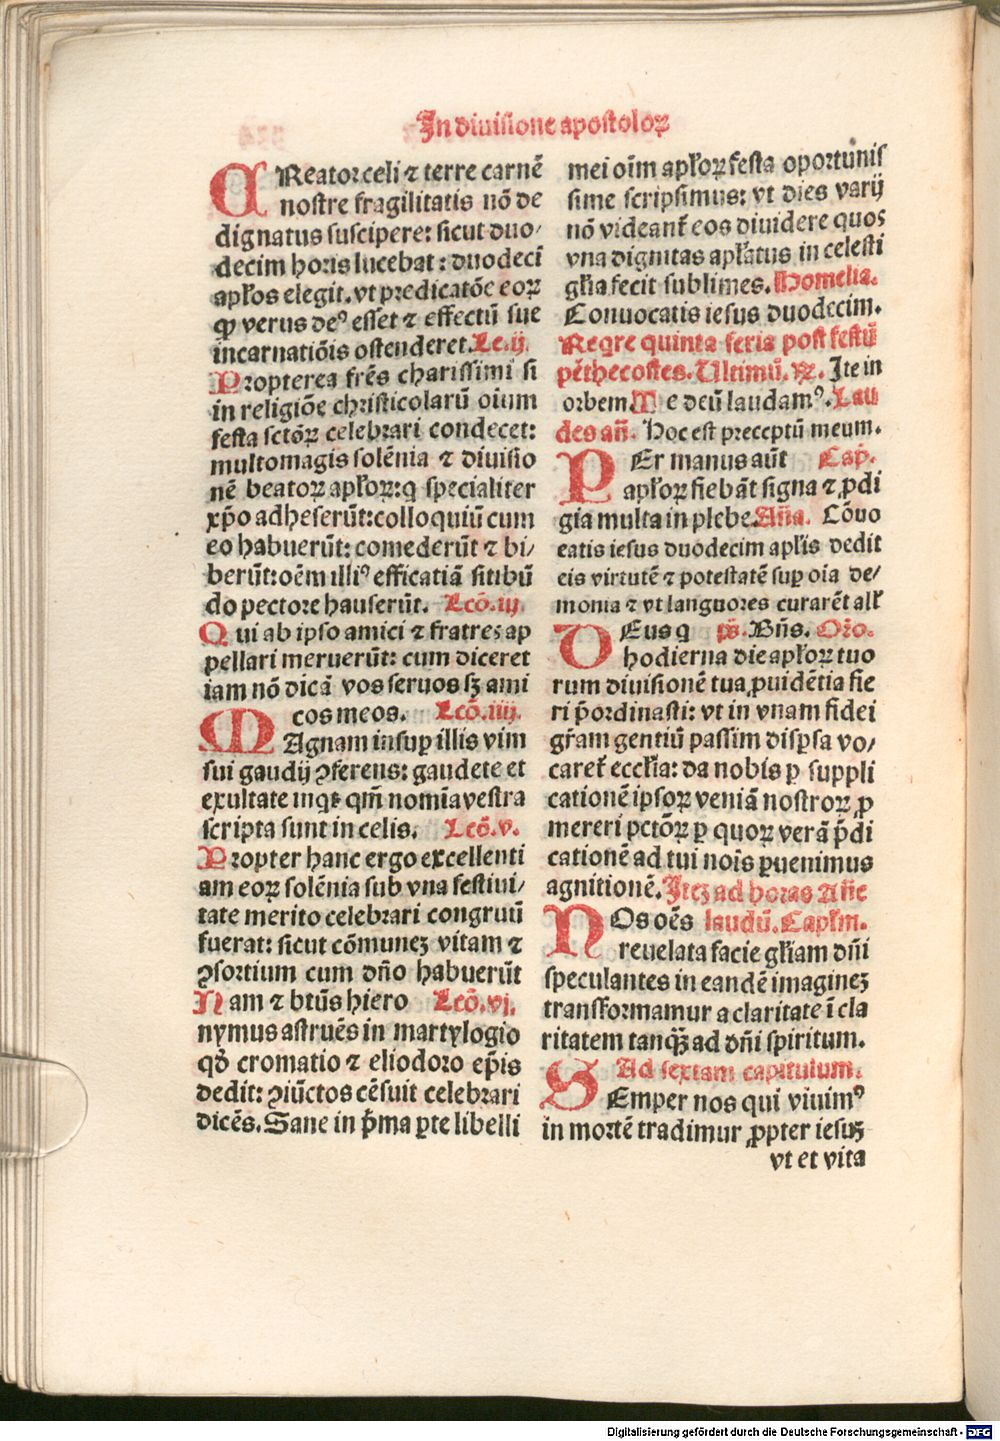 In diuisione apostoloꝝ
CReator celi ⁊ terre carnē
nostre fragilitatis nō de
dignatus suscipere: sicut duo⸗
decim horis lucebat: duodeci
apłos elegit. vt predicatōe eoꝝ
ꝙ verus deꝰ esset ⁊ effectū sue
incarnatiōis ostenderet. Le.ij.
Propterea frēs charissimi si
in religiōe christicolarū oium
festa sctōꝝ celebrari condecet:
multomagis solēnia ⁊ diuisio
nē beatoꝝ apłoꝝ: q specialiter
xp̄o adheserūt: colloquiū cum
eo habuerūt: comederūt ⁊ bi⸗
berūt: oēm illiꝰ efficatiā sitibū
do pectore hauserūt. Lcō.iij.
Qui ab ipso amici ⁊ fratres ap
pellari meruerūt: cum diceret
iam nō dicā vos seruos sꝫ ami
cos meos. Lcō.iiij.
MAgnam insuꝑ illis vim
sui gaudij ꝯferens: gaudete et
exultate inqt qm̄ nomīa vestra
scripta sunt in celis. Lcō.v.
Propter hanc ergo excellenti
am eoꝝ solēnia sub vna festiui⸗
tate merito celebrari congruū
fuerat: sicut cōmuneꝫ vitam ⁊
ꝯsortium cum dn̄o habuerūt
Nam ⁊ btūs hiero Lcō.vj.
nymus astruēs in martylogio
qđ cromatio ⁊ eliodoro ep̄is
dedit: ꝯiūctos cēsuit celebrari
dicēs. Sane in p̄ma ꝑte libelli
mei oīm apłoꝝ festa oportunis
sime scripsimus: vt dies varij
nō videant̄ eos diuidere quos
vna dignitas apłatus in celesti
głia fecit sublimes. Homelia.
Conuocatis iesus duodecim.
Reqre quinta feria post festū
pēthecostes. Ultimū. ꝶ. Ite in
orbem. Te deū laudamꝰ. Lau
des añ. Hoc est preceptū meum.
PEr manus aūt Cap̄.
apłoꝝ fiebāt signa ⁊ ꝓdi
gia multa in plebe. Aña. Cōuo
catis iesus duodecim apłis dedit
eis virtutē ⁊ potestatē suꝑ oīa de⸗
monia ⁊ vt languores curarēt all̄
DEus q p̄s. Bn̄s. Or̄o.
hodierna die apłoꝝ tuo
rum diuisionē tua ꝓuidētia fie
ri p̄ordinasti: vt in vnam fidei
gr̄am gentiū passim disꝑsa vo⸗
caret̄ eccłia: da nobis ꝑ suppli
cationē ipsoꝝ veniā nostroꝝ ꝓ
mereri pctōꝝ ꝑ quoꝝ verā p̄di
cationē ad tui noīs ꝑuenimus
agnitionē. Iteꝫ ad horas Añe
NOs oēs laudū. Capłm.
reuelata facie głiam dn̄i
speculantes in eandē imagineꝫ
transformamur a claritate ī cla
ritatem tanq̄ꝫ ad dn̄i spiritum.
Ad sextam capitulum.
SEmper nos qui viuimꝰ
in mortē tradimur ꝓpter iesuꝫ
vt et vita
Digitalisierung gefördert durch die Deutsche Forschungsgemeinschaft - DFG